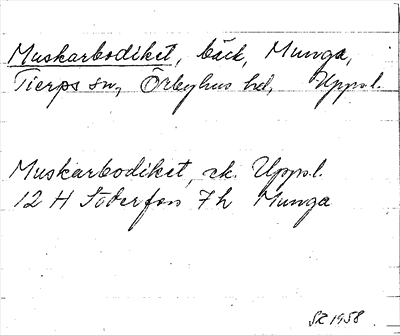 Muskarbodiket, bäck, Munga,
Tierps sn, Örbyhus hd, Uppsl.
Muskarbodiket, ek. Uppsl.
12 H Söderfors 7 h Munga
SR 1958